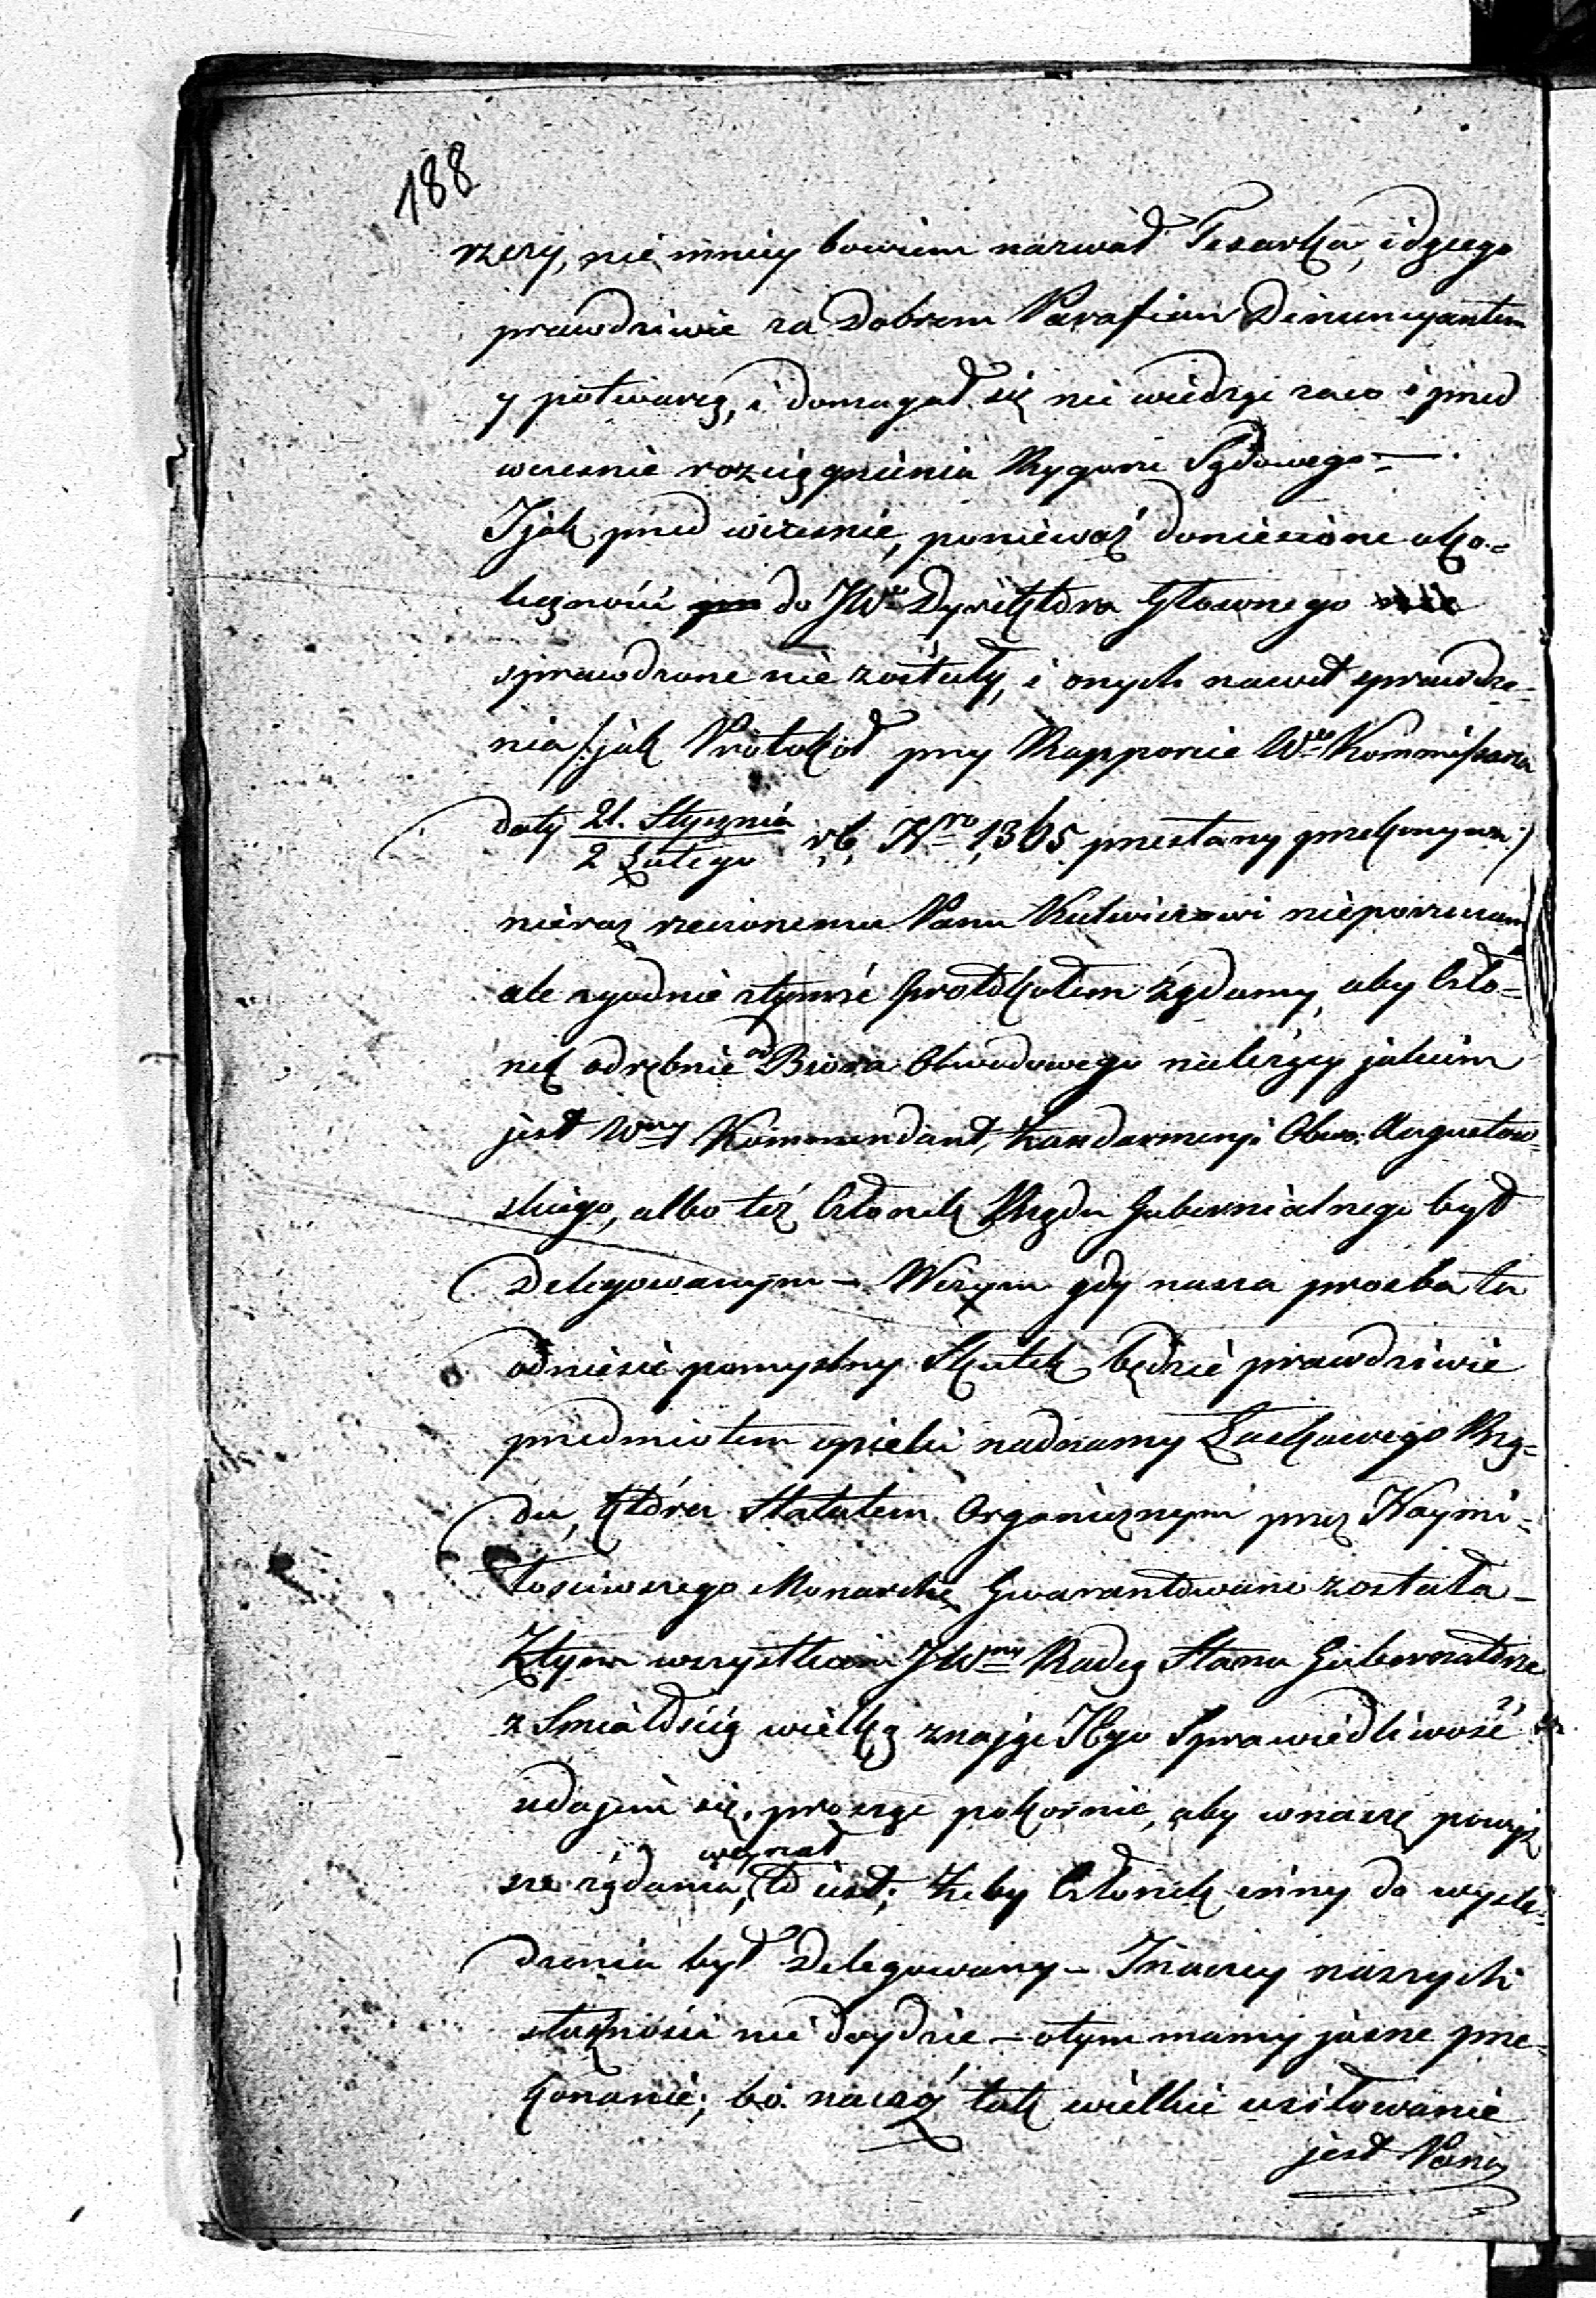 188
rzeczy, nie mniey bowiem nazwał Tesarka, idącego
prawdziwie za dobrem Parafian Denuncyantem
y potwarcą, i domagał się nie wiedzą zaco i przed
wcześnie rozciągnienia Rygoru Sądowego —
I jak przed wcześnie, ponieważ doniesione oko-
liczności do JWo Dyrektora Głownego
sprawdzone nie zostały, i onych nawet sprawdze-
nia /: jak Protokół przy Rapporcie Wgo Kommissarza
daty 21. Stycznia / 2 Lutego r. b. Nro 1365 przesłany przekonywa :/
nieraz rzeczonemu Panu Kutwiczowi nieporuczam
ale zgodnie z tymże Protokołem żądamy, aby Czło-
nek odrębnie od Biora Obwodowego należący jakim
jest Wny Kommendant Żandarmeryi Obwo. Augustow-
skiego, albo też Członek Rządu Gubernialnego był
Delegowanym — W czym gdy nasza prozba ta
odniesie pomyslny Skutek będzie prawdziwie
przedmiotem opieki nadnamy Łaskawego Rzą-
du, która Statutem Organicznym przez Naymi-
łościwszego Monarchę Gwarantowana została —
Ztym wszystkiem JWny Radco Stanu Gubernatorze
z Smiałością wielką znając JEgo Sprawiedliwość
udajem się, prosząc pokornie, aby wnasze powyż
sze rządania, weyrzał to iest; żeby Członek inny do wyśle-
dzenia był Delegowany — Inaczey naszych
słuszności nie doydzie — otym mamy jasne prze-
konanie; bo naczóż tak wielkie usiłowanie
jest Pana